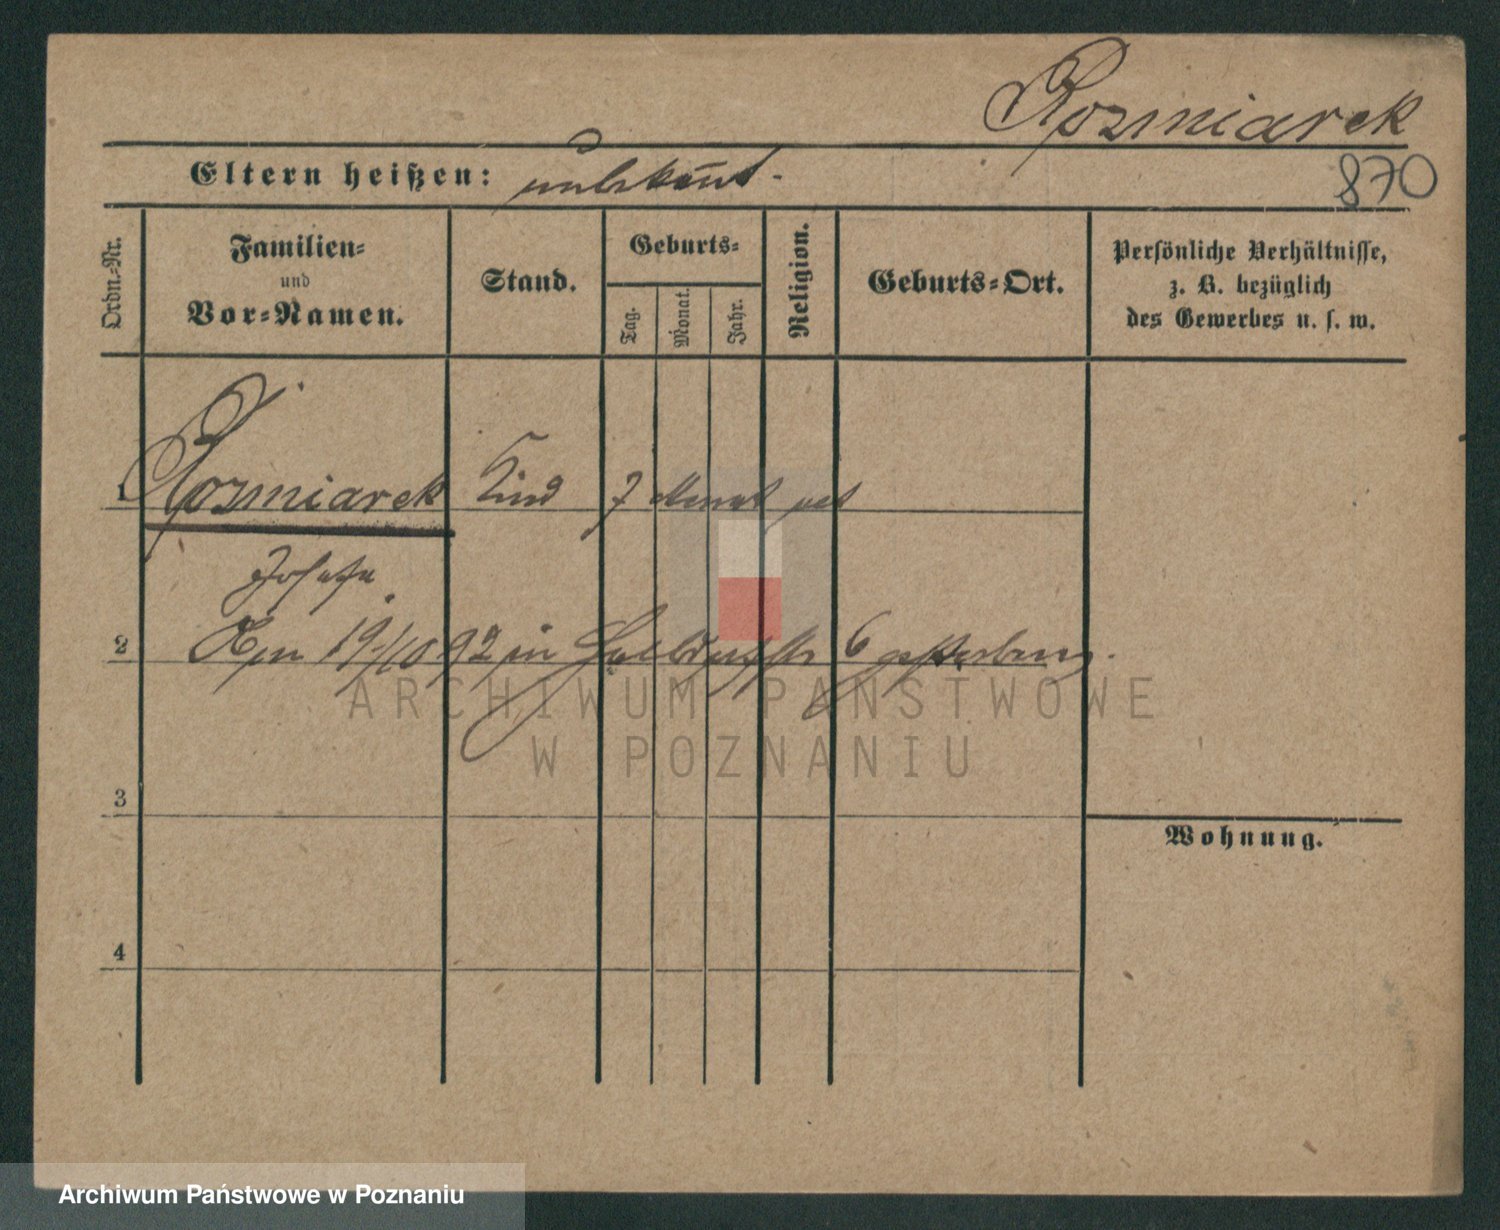 Rozmiarek
Eltern heißen: unbekannt.
870
Ordn.=Nr.
Familien=
und
Vor=Namen.
Stand.
Geburts=
Tag.
Monat.
Jahr.
Religion.
Geburts=Ort.
Persönliche Verhältnisse,
z. B. bezüglich
des Gewerbes u. s. w.
1 Rozmiarek Kind 7 Monat
Josefa
Am 19/10 92 in 6 gestorben.
2
ARCHIWUM PAŃSTWOWE
W POZNANIU
3
Wohnung.
4
Archiwum Państwowe w Poznaniu